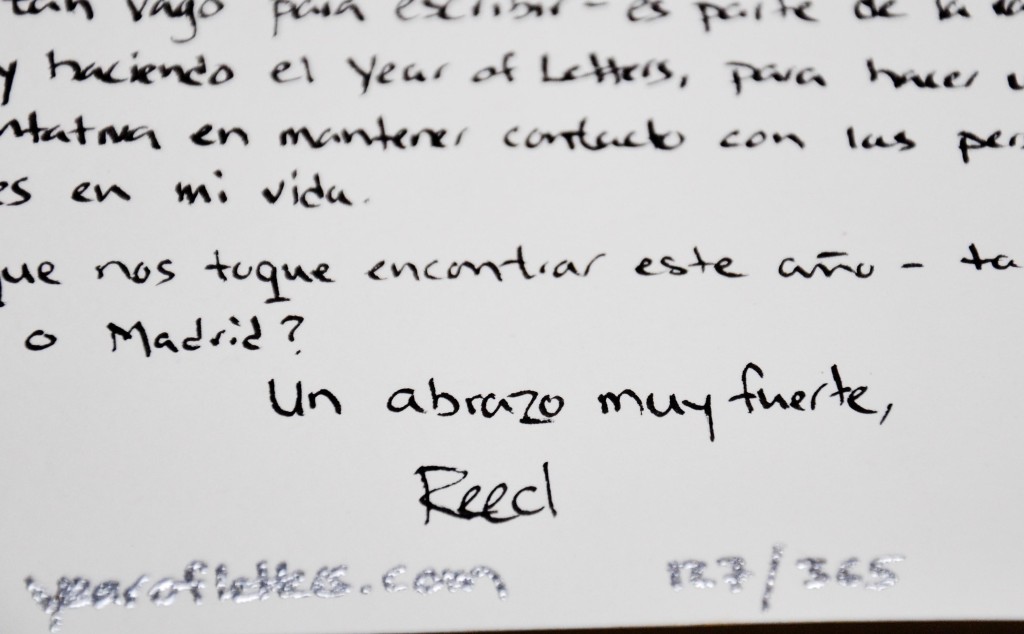 tan vago para escribir - es parte de la
y haciendo el Year of Letters, para hacer
en mantener contacto con las per
es en mi vida.
que nos toque encontrar este año - ta
o Madrid?
Un abrazo muy fuerte,
Reed
yearofletters.com 127/365